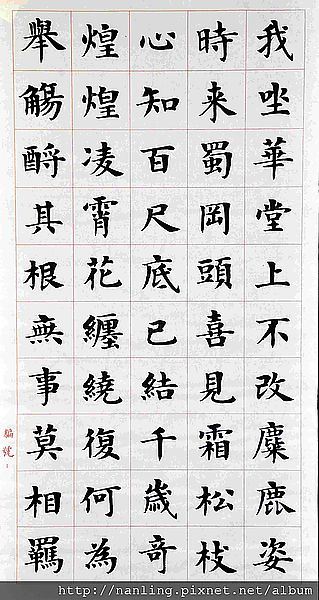 我坐華堂上不改麋鹿姿
時来蜀岡頭喜見霜松枝
心知百尺底已結千歲奇
煌煌凌霄花纏繞復何為
舉觴酹其根無事莫相羈
編號：
http://nanling.pixnet.net/album